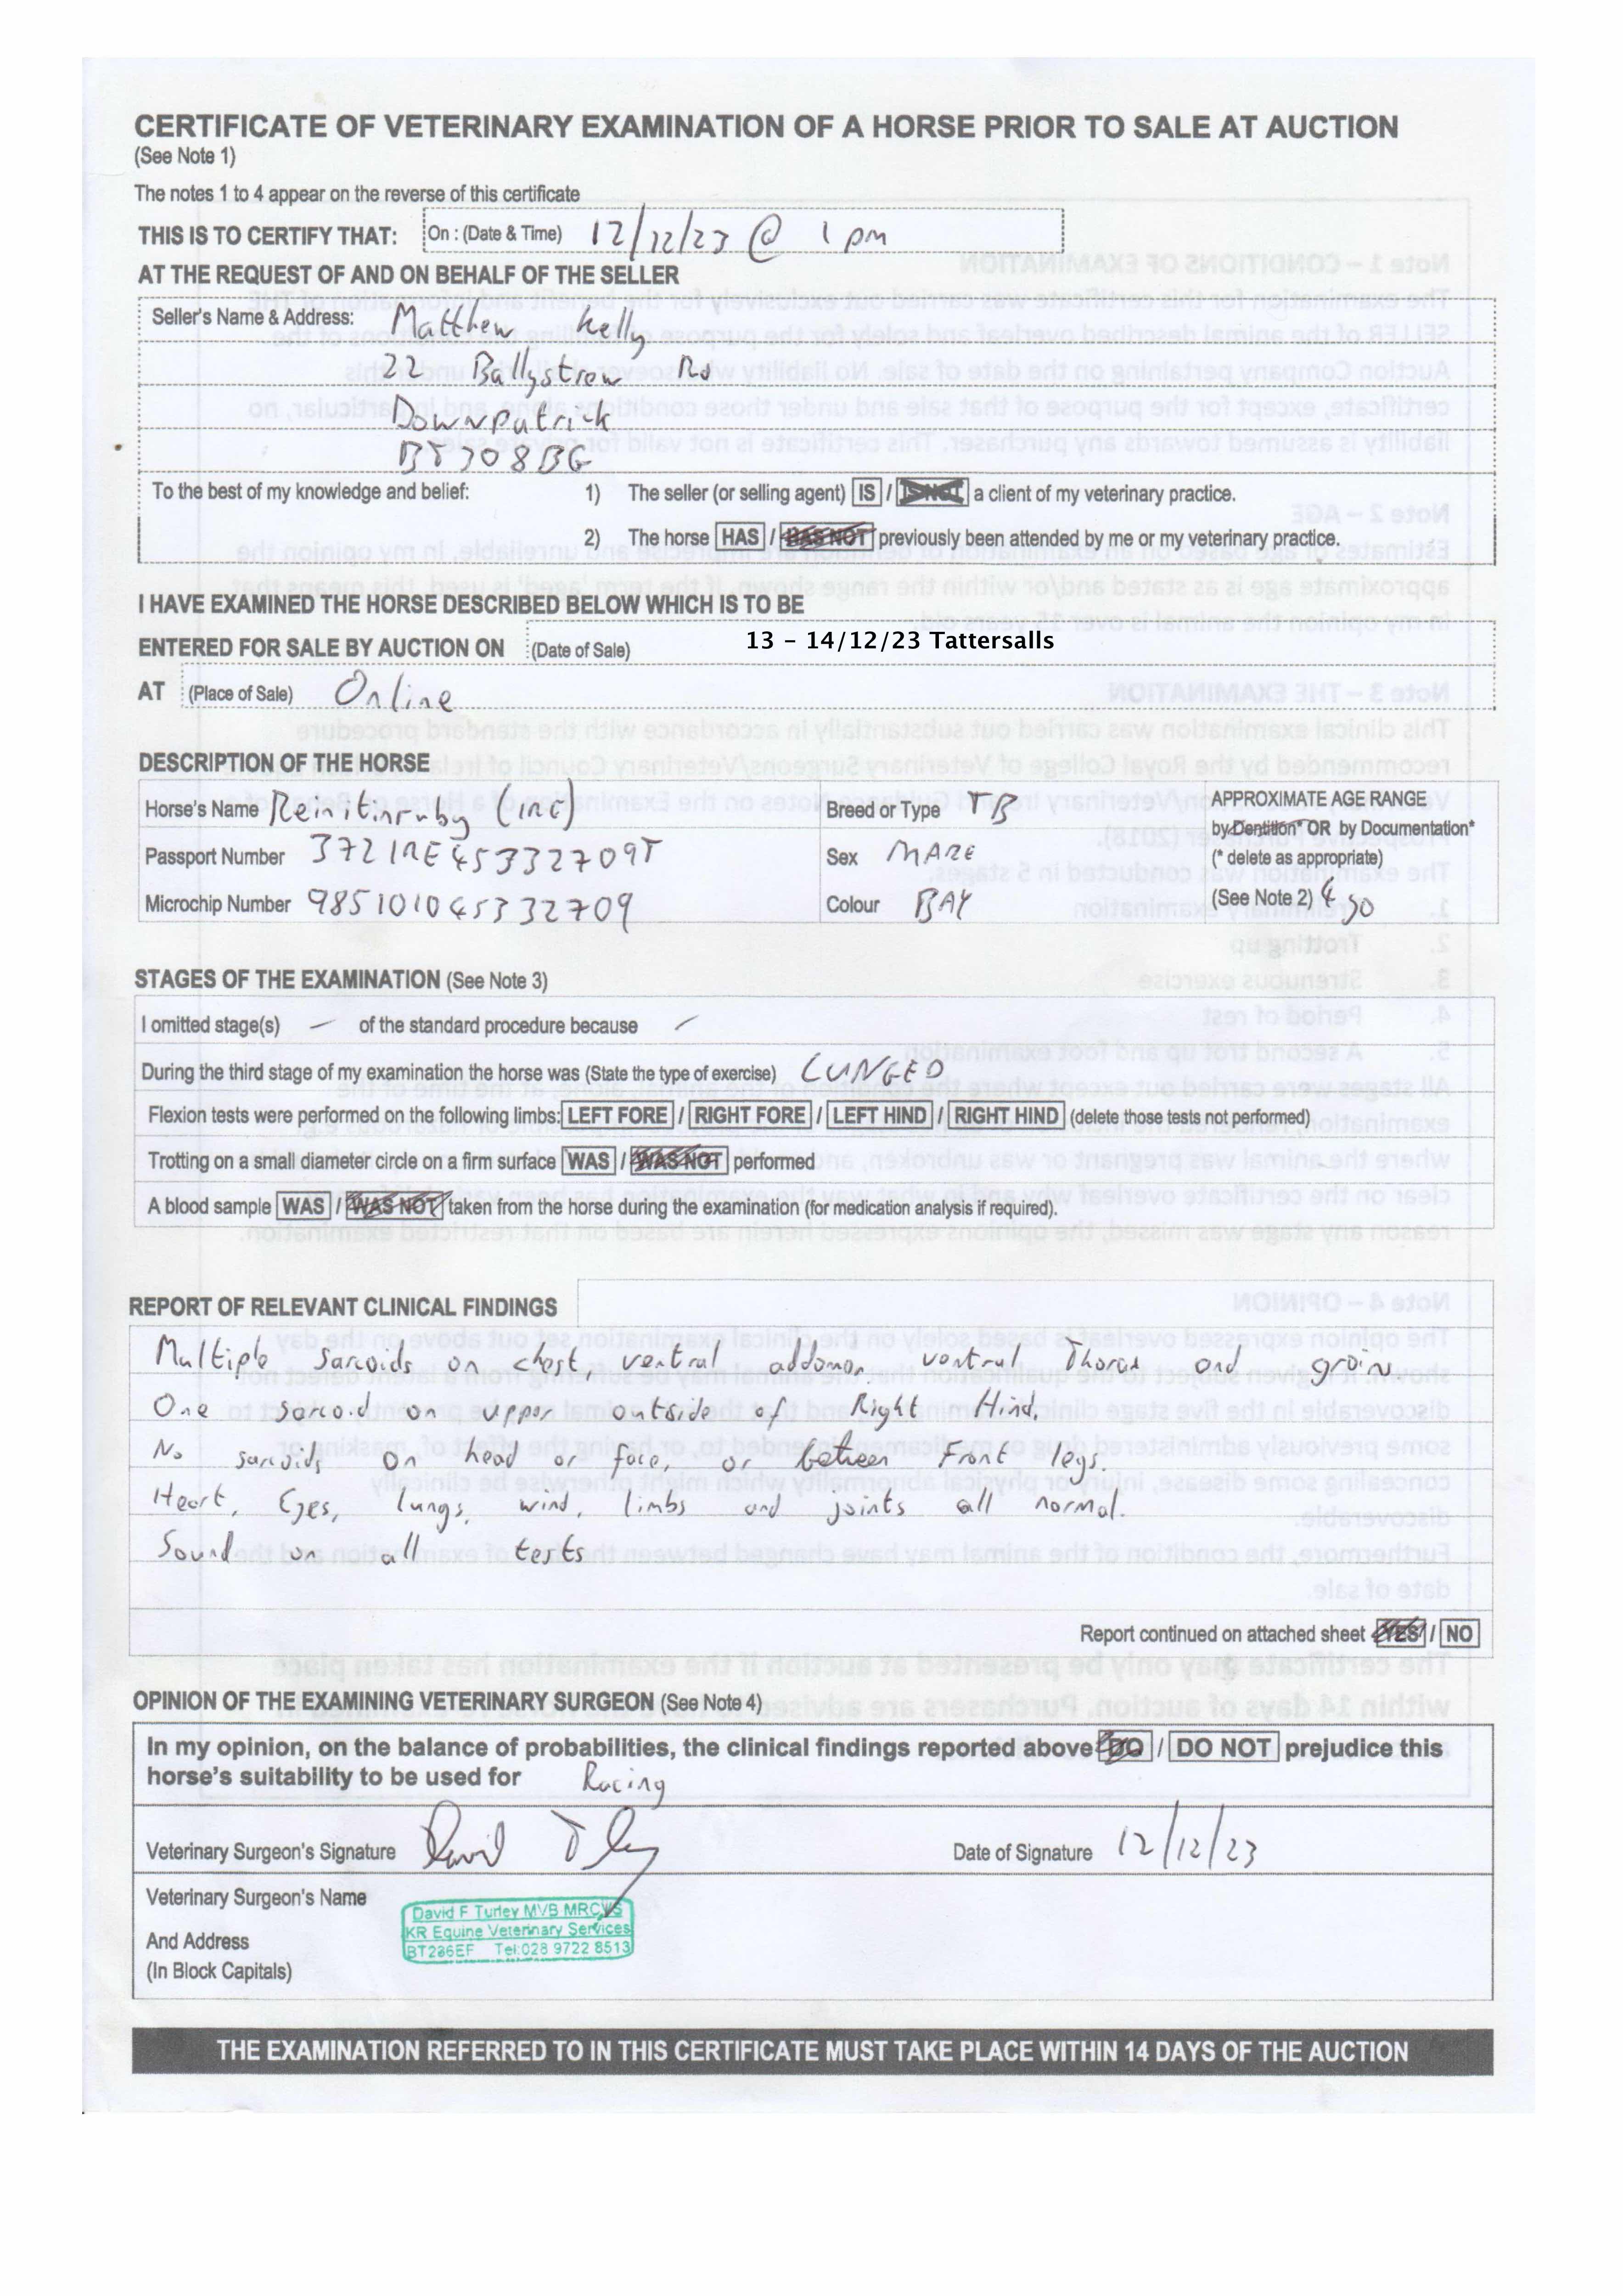 CERTIFICATE OF VETERINARY EXAMINATION OF A HORSE PRIOR TO SALE AT AUCTION
(See Note 1)
The notes 1 to 4 appear on the reverse of this certificate
THIS IS TO CERTIFY THAT: On : (Date & Time) 12/12/23 @ 1 pm
AT THE REQUEST OF AND ON BEHALF OF THE SELLER
Seller's Name & Address: Matthew Kelly
22 Ballystrew Rd
Downpatrick
BT308BG
To the best of my knowledge and belief: 1) The seller (or selling agent) IS / IS NOT a client of my veterinary practice.
2) The horse HAS / HAS NOT previously been attended by me or my veterinary practice.
I HAVE EXAMINED THE HORSE DESCRIBED BELOW WHICH IS TO BE
ENTERED FOR SALE BY AUCTION ON (Date of Sale) 13 - 14/12/23 Tattersalls
AT (Place of Sale) Online
DESCRIPTION OF THE HORSE
Horse's Name Reinitinruby (IRE)
Passport Number 372IRE45332709T
Microchip Number 985101045332709
Breed or Type TB
Sex MARE
Colour BAY
APPROXIMATE AGE RANGE
by Dentition* OR by Documentation*
(* delete as appropriate)
(See Note 2) 4 yo
STAGES OF THE EXAMINATION (See Note 3)
I omitted stage(s) — of the standard procedure because —
During the third stage of my examination the horse was (State the type of exercise) LUNGED
Flexion tests were performed on the following limbs: LEFT FORE / RIGHT FORE / LEFT HIND / RIGHT HIND (delete those tests not performed)
Trotting on a small diameter circle on a firm surface WAS / WAS NOT performed
A blood sample WAS / WAS NOT taken from the horse during the examination (for medication analysis if required).
REPORT OF RELEVANT CLINICAL FINDINGS
Multiple sarcoids on chest, ventral addomen. ventral Thorax and groin.
One sarcoid on upper outside of Right Hind.
No sarcoids on head or face, or between Front legs.
Heart, Eyes, lungs, wind, limbs and joints all normal.
Sound on all tests
Report continued on attached sheet YES / NO
OPINION OF THE EXAMINING VETERINARY SURGEON (See Note 4)
In my opinion, on the balance of probabilities, the clinical findings reported above DO / DO NOT prejudice this
horse's suitability to be used for Racing
Veterinary Surgeon's Signature David Turley Date of Signature 12/12/23
Veterinary Surgeon's Name
And Address
(In Block Capitals)
David F Turley MVB MRCVS
KR Equine Veterinary Services
BT236EF Tel:028 9722 8513
THE EXAMINATION REFERRED TO IN THIS CERTIFICATE MUST TAKE PLACE WITHIN 14 DAYS OF THE AUCTION